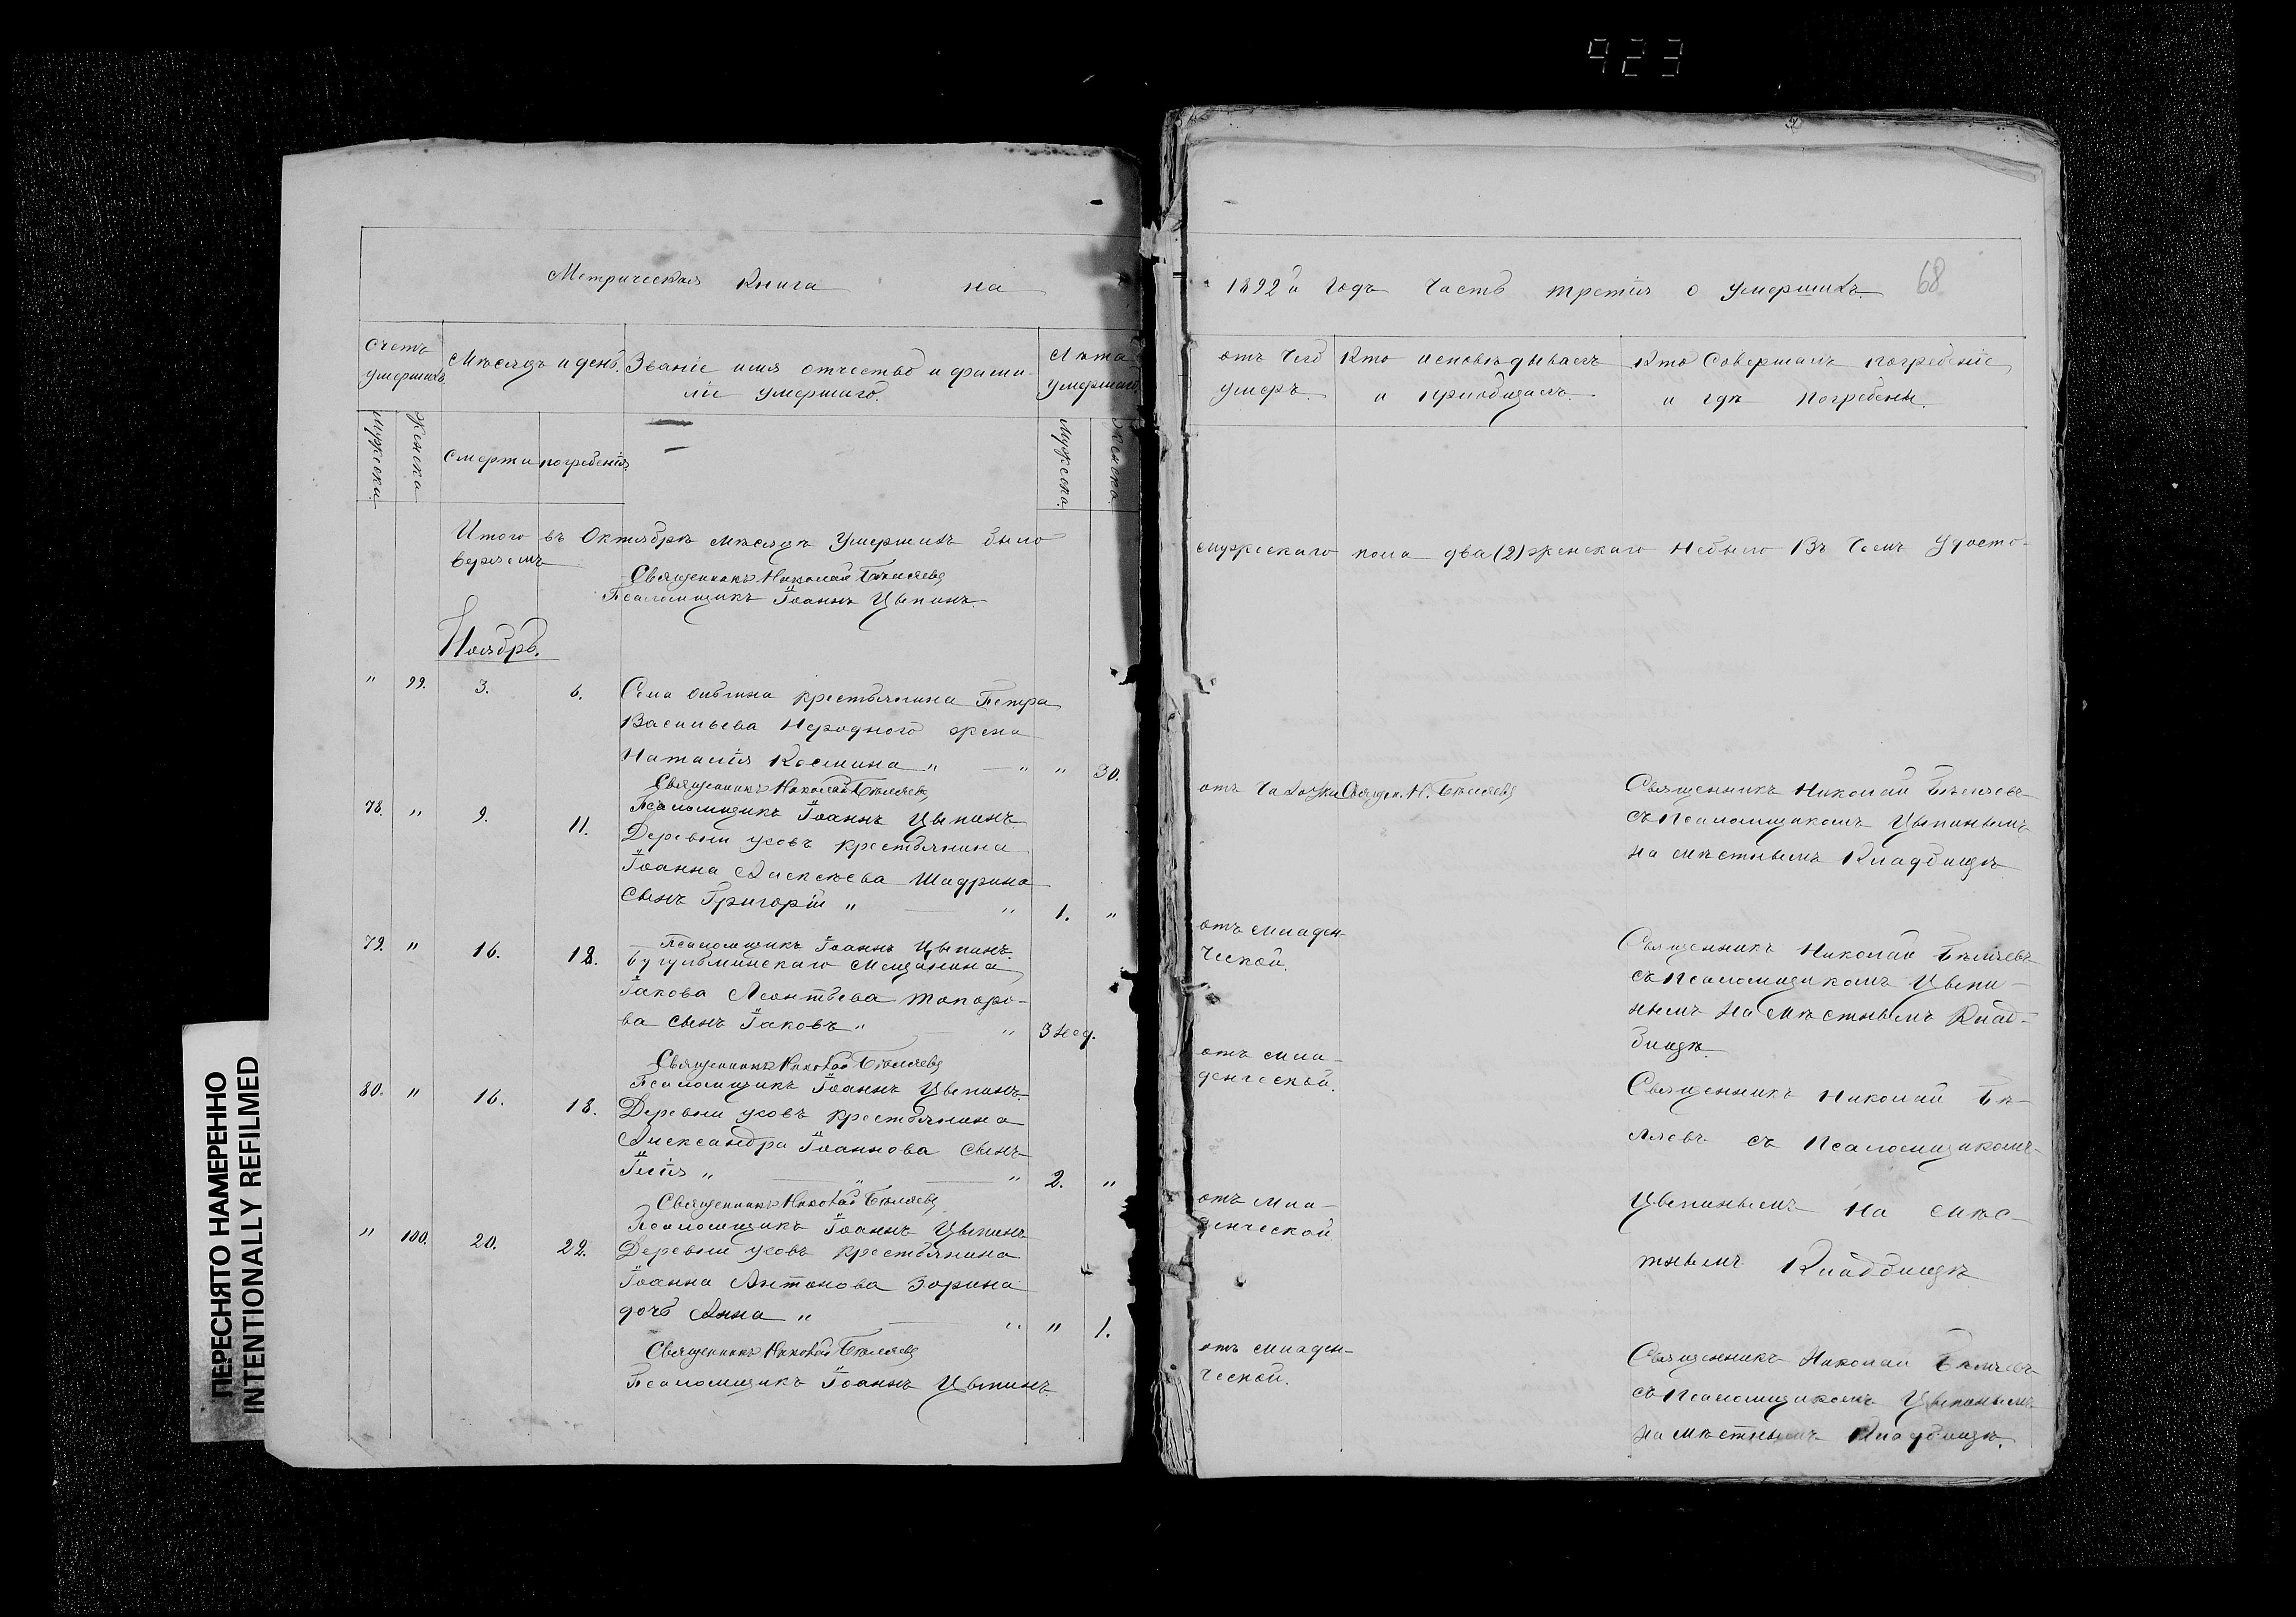 923
Метрическая Книга на
1892й годъ Часть третія о умершихъ.
68
Счетъ умершихъ
Мѣсяцъ и день.
Званіе имя отчество и фами-
ліе умершаго.
Лѣта умершаго
Мужеска
Женска
Смерти
погребенія
Мужеска.
Женска.
отъ Чего
умеръ.
Кто исповѣдывалъ
и пріобщалъ.
Кто Совершалъ погребеніе
и гдѣ погребены.
Итого въ Октябрѣ мѣсяцѣ Умершихъ было
мужескаго пола два (2) женскаго Небыло Въ Чемъ Удосто-
веряемъ
Священникъ Николай Бѣляевъ
Псаломщикъ Іоаннъ Цыпинъ.
Ноябрь.
" 99. 3. 6. Села крестьянина Петра
Васильева Нероднаго жена
Наталія Космина " " " 30.
отъ Чахотки Священ. Н. Бѣляевъ
Священникъ Николай Бѣляевъ
съ Псаломщикомъ Цыпинымъ
на мѣстнымъ Кладбищѣ
Священникъ Николай Бѣляевъ
Псаломщикъ Іоаннъ Цыпинъ.
78. " 9. 11. Деревни Усовъ крестьянина
Іоанна Алексѣева Шадрина
сынъ Григорій " " 1. "
отъ младен-
ческой.
Священникъ Николай Бѣляевъ
съ Псаломщикомъ Цыпи-
нымъ На Мѣстнымъ Клад-
бищѣ
Псаломщикъ Іоаннъ Цыпинъ.
79. " 16. 18. Бугульминскаго Мещанина
Іакова Леонтьева Топоро-
ва сынъ Іаковъ " " 3 нед.
отъ мла-
денческой.
Священникъ Николай Бѣ-
ляевъ съ Псаломщикомъ
Цыпинымъ На Мѣс-
тнымъ Кладбищѣ
Священникъ Николай Бѣляевъ
Псаломщикъ Іоаннъ Цыпинъ.
80. " 16. 18. Деревни Усовъ крестьянина
Александра Іоаннова сынъ
Илія " " " 2. "
отъ мла-
денческой
Священникъ Николай Бѣляевъ
Псаломщикъ Іоаннъ Цыпинъ
" 100. 20. 22. Деревни Усовъ крестьянина
Іоанна Антонова Зорина
дочь Анна " " " 1.
отъ младен-
ческой.
Священникъ Николай Бѣляевъ
съ Псаломщикомъ Цыпинымъ
на мѣстнымъ Кладбищѣ.
Священникъ Николай Бѣляевъ
Псаломщикъ Іоаннъ Цыпинъ.
ПЕРЕСНЯТО НАМЕРЕННО
INTENTIONALLY REFILMED